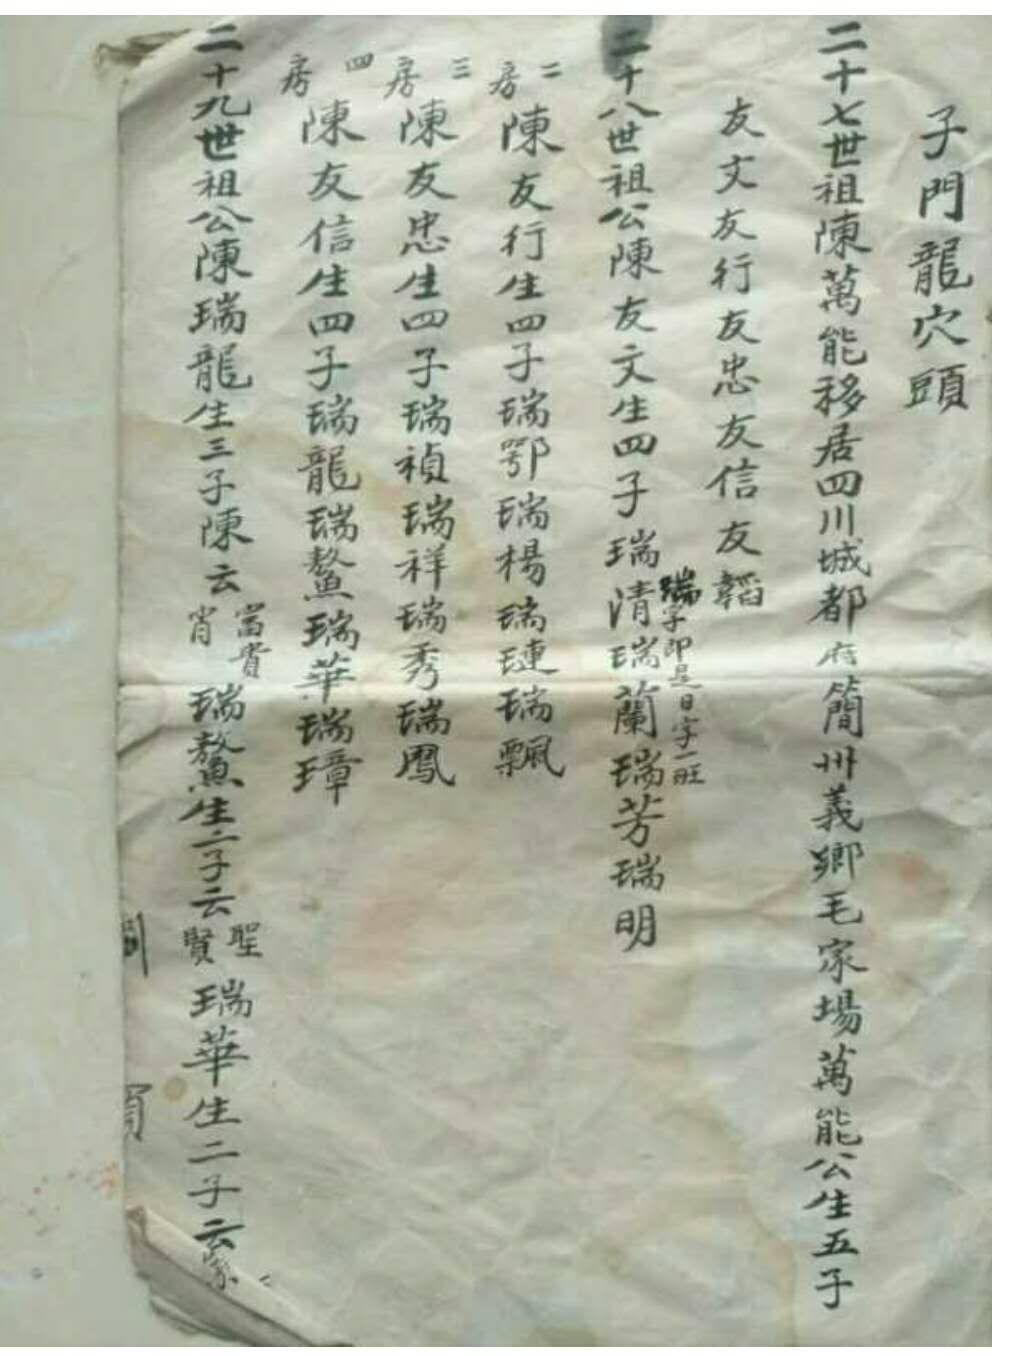 子門龍穴頭
二十七世祖陳萬能移居四川城都府簡州義鄉毛家場萬能公生五子
友文友行友忠友信友韜
二十八世祖公陳友文生四子瑞清瑞蘭瑞芳瑞明
瑞字即是日字一旺
二房陳友行生四子瑞鄂瑞楊瑞璉瑞飄
三房陳友忠生四子瑞禎瑞祥瑞秀瑞鳳
四房陳友信生四子瑞龍瑞鰲瑞華瑞璋
二十九世祖公陳瑞龍生三子陳云富貴肖瑞鰲生二子云聖賢瑞華生二子云